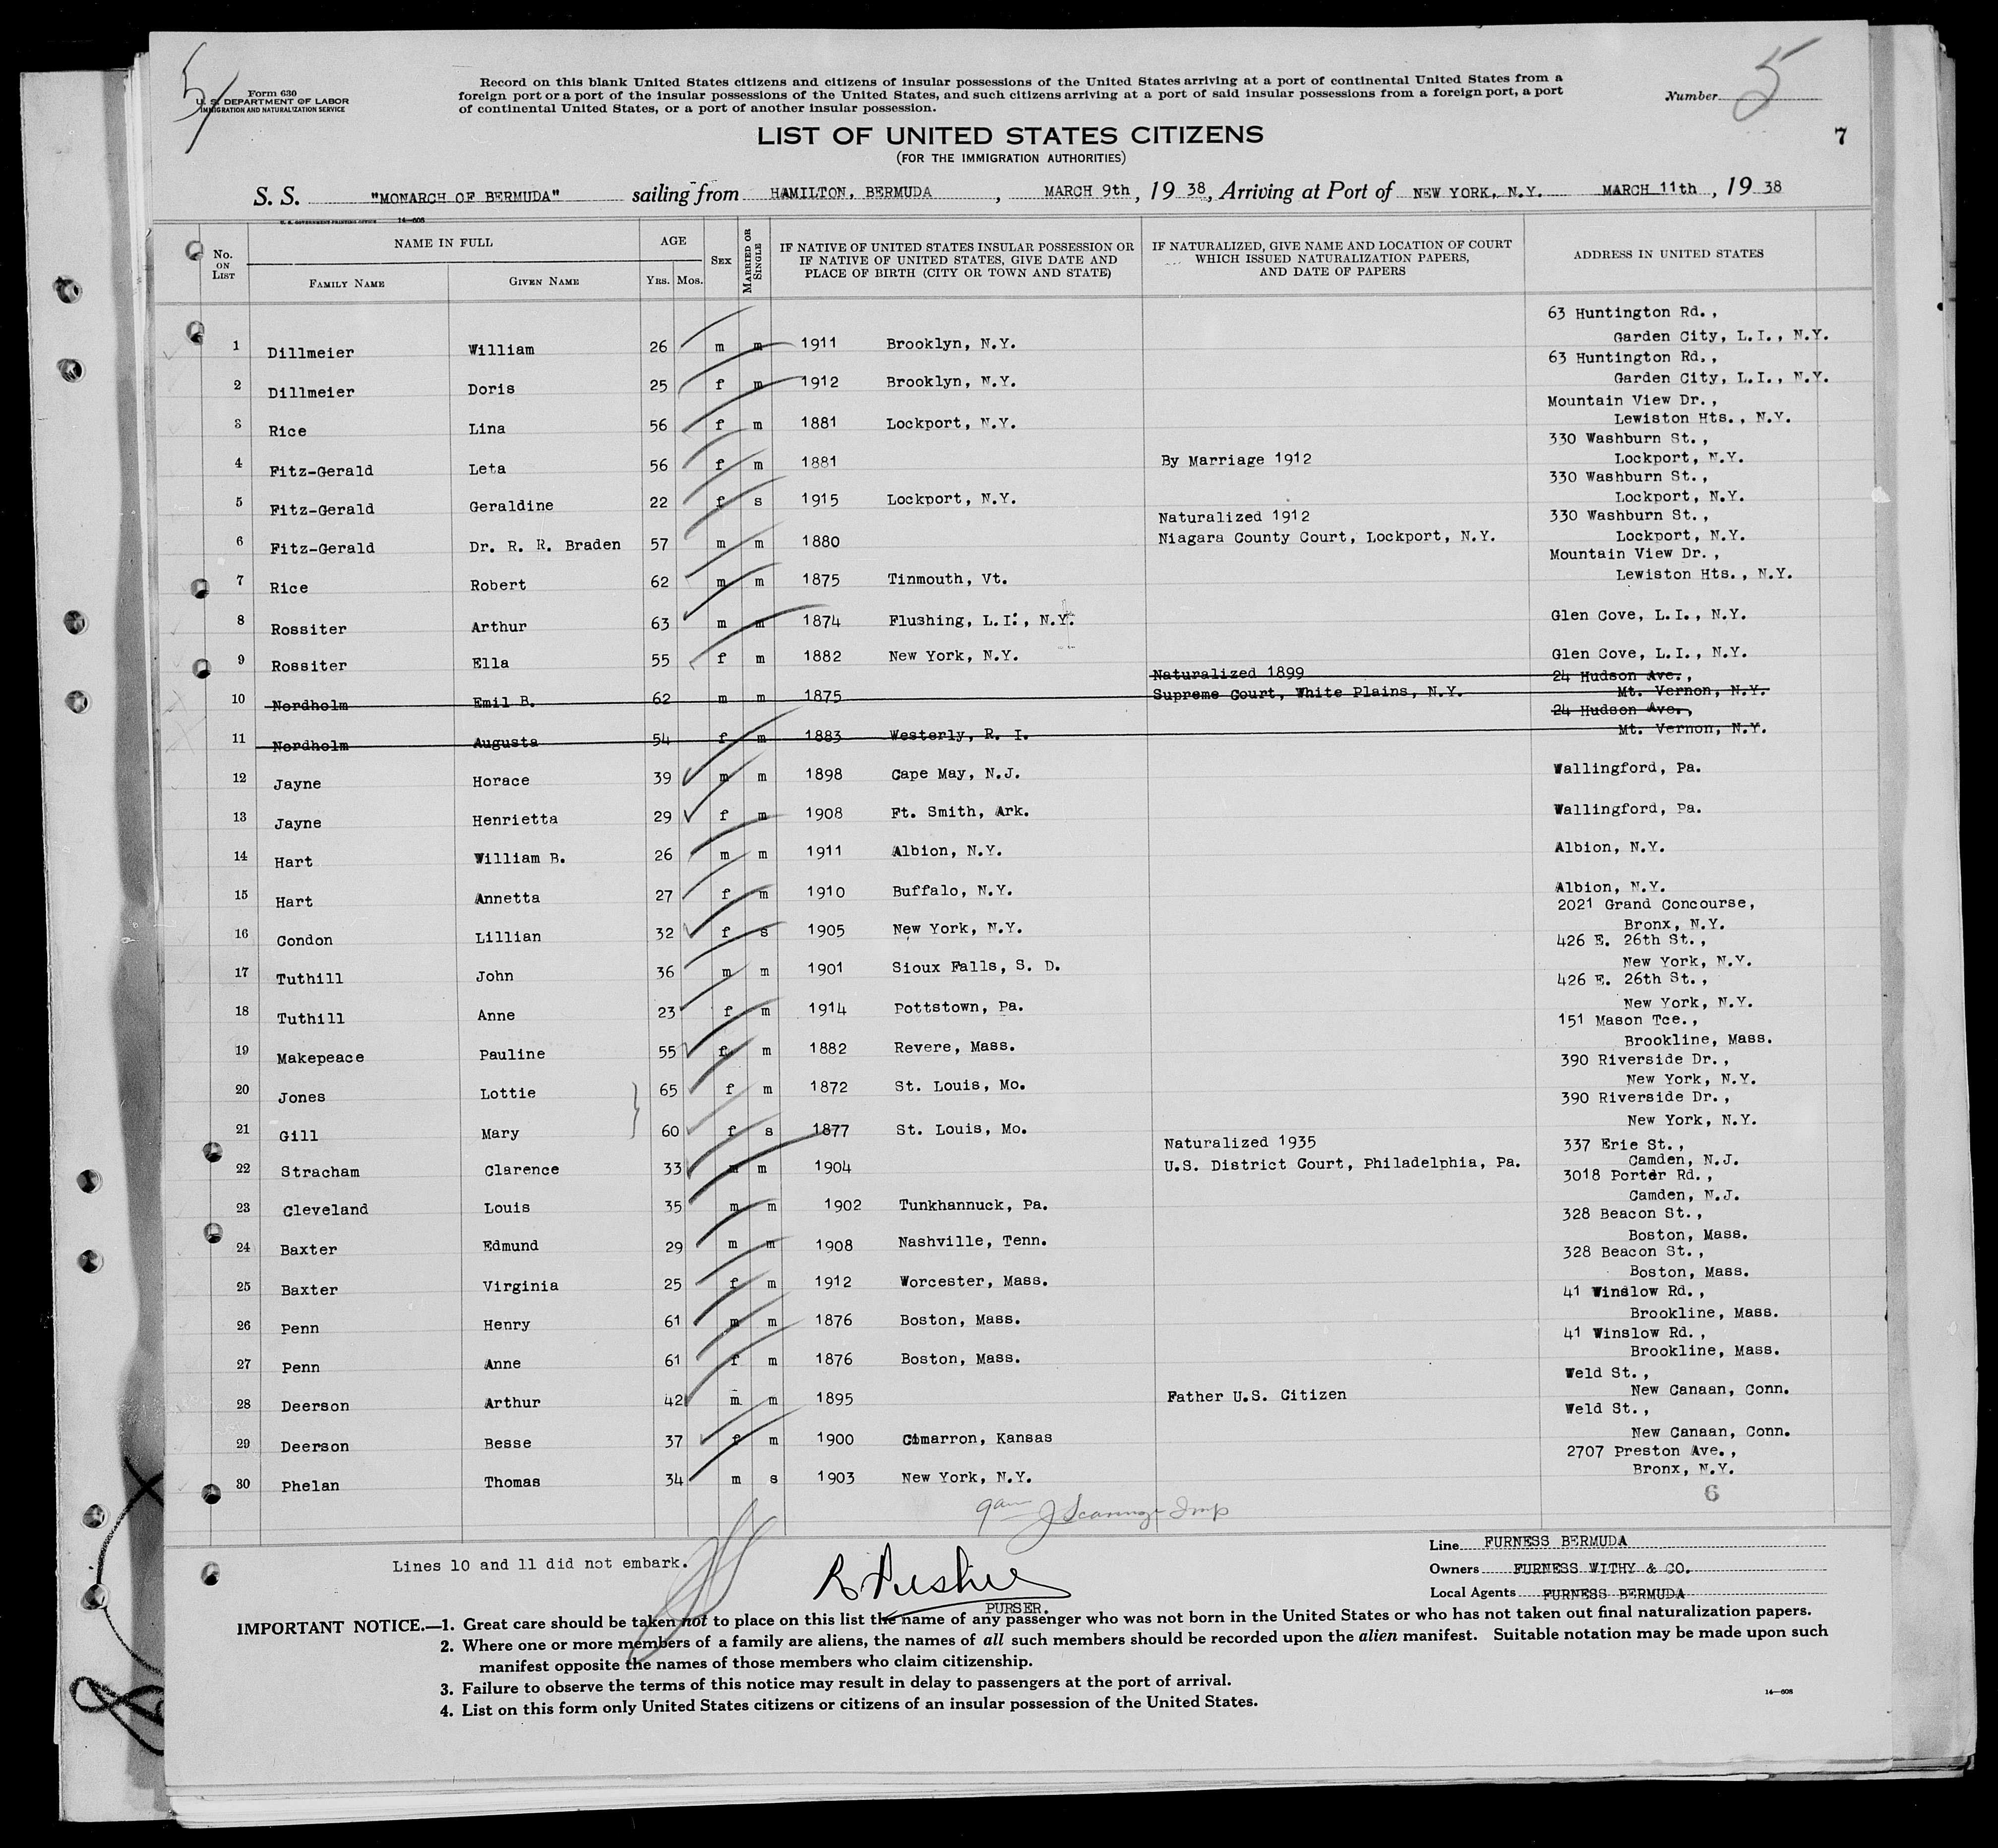 5
Form 630
U. S. DEPARTMENT OF LABOR
IMMIGRATION AND NATURALIZATION SERVICE
Record on this blank United States citizens and citizens of insular possessions of the United States arriving at a port of continental United States from a
foreign port or a port of the insular possessions of the United States, and such citizens arriving at a port of said insular possessions from a foreign port, a port
of continental United States, or a port of another insular possession.
Number 5
7
LIST OF UNITED STATES CITIZENS
(FOR THE IMMIGRATION AUTHORITIES)
S. S. "MONARCH OF BERMUDA" sailing from HAMILTON, BERMUDA, MARCH 9th, 19 38, Arriving at Port of NEW YORK, N.Y. MARCH 11th, 19 38
U. S. GOVERNMENT PRINTING OFFICE 14—608
No. ON LIST NAME IN FULL FAMILY NAME GIVEN NAME AGE YRS. MOS. SEX MARRIED OR SINGLE IF NATIVE OF UNITED STATES INSULAR POSSESSION OR IF NATIVE OF UNITED STATES, GIVE DATE AND PLACE OF BIRTH (CITY OR TOWN AND STATE) IF NATURALIZED, GIVE NAME AND LOCATION OF COURT WHICH ISSUED NATURALIZATION PAPERS, AND DATE OF PAPERS ADDRESS IN UNITED STATES
63 Huntington Rd.,
1 Dillmeier William 26 m m 1911 Brooklyn, N.Y. Garden City, L.I., N.Y.
63 Huntington Rd.,
2 Dillmeier Doris 25 f m 1912 Brooklyn, N.Y. Garden City, L.I., N.Y.
Mountain View Dr.,
3 Rice Lina 56 f m 1881 Lockport, N.Y. Lewiston Hts., N.Y.
330 Washburn St.,
4 Fitz-Gerald Leta 56 f m 1881 By Marriage 1912 Lockport, N.Y.
330 Washburn St.,
5 Fitz-Gerald Geraldine 22 f s 1915 Lockport, N.Y. Lockport, N.Y.
Naturalized 1912 330 Washburn St.,
6 Fitz-Gerald Dr. R. R. Braden 57 m m 1880 Niagara County Court, Lockport, N.Y. Lockport, N.Y.
Mountain View Dr.,
7 Rice Robert 62 m m 1875 Tinmouth, Vt. Lewiston Hts., N.Y.
8 Rossiter Arthur 63 m m 1874 Flushing, L.I., N.Y. Glen Cove, L.I., N.Y.
9 Rossiter Ella 55 f m 1882 New York, N.Y. Glen Cove, L.I., N.Y.
Naturalized 1899 24 Hudson Ave.,
10 Nordholm Emil B. 62 m m 1875 Supreme Court, White Plains, N.Y. Mt. Vernon, N.Y.
24 Hudson Ave.,
11 Nordholm Augusta 54 f m 1883 Westerly, R. I. Mt. Vernon, N.Y.
12 Jayne Horace 39 m m 1898 Cape May, N.J. Wallingford, Pa.
13 Jayne Henrietta 29 f m 1908 Ft. Smith, Ark. Wallingford, Pa.
14 Hart William B. 26 m m 1911 Albion, N.Y. Albion, N.Y.
15 Hart Annetta 27 f m 1910 Buffalo, N.Y. Albion, N.Y.
2021 Grand Concourse,
16 Condon Lillian 32 f s 1905 New York, N.Y. Bronx, N.Y.
426 E. 26th St.,
17 Tuthill John 36 m m 1901 Sioux Falls, S. D. New York, N.Y.
426 E. 26th St.,
18 Tuthill Anne 23 f m 1914 Pottstown, Pa. New York, N.Y.
151 Mason Tce.,
19 Makepeace Pauline 55 f m 1882 Revere, Mass. Brookline, Mass.
390 Riverside Dr.,
20 Jones Lottie 65 f m 1872 St. Louis, Mo. New York, N.Y.
390 Riverside Dr.,
21 Gill Mary 60 f s 1877 St. Louis, Mo. New York, N.Y.
Naturalized 1935 337 Erie St.,
22 Stracham Clarence 33 m m 1904 U.S. District Court, Philadelphia, Pa. Camden, N.J.
3018 Porter Rd.,
23 Cleveland Louis 35 m m 1902 Tunkhannuck, Pa. Camden, N.J.
328 Beacon St.,
24 Baxter Edmund 29 m m 1908 Nashville, Tenn. Boston, Mass.
328 Beacon St.,
25 Baxter Virginia 25 f m 1912 Worcester, Mass. Boston, Mass.
41 Winslow Rd.,
26 Penn Henry 61 m m 1876 Boston, Mass. Brookline, Mass.
41 Winslow Rd.,
27 Penn Anne 61 f m 1876 Boston, Mass. Brookline, Mass.
Weld St.,
28 Deerson Arthur 42 m m 1895 Father U.S. Citizen New Canaan, Conn.
Weld St.,
29 Deerson Besse 37 f m 1900 Cimarron, Kansas New Canaan, Conn.
2707 Preston Ave.,
30 Phelan Thomas 34 m s 1903 New York, N.Y. Bronx, N.Y.
6
Lines 10 and 11 did not embark.
PURSER.
Line FURNESS BERMUDA
Owners FURNESS WITHY & CO.
Local Agents FURNESS BERMUDA
IMPORTANT NOTICE.—1. Great care should be taken not to place on this list the name of any passenger who was not born in the United States or who has not taken out final naturalization papers.
2. Where one or more members of a family are aliens, the names of all such members should be recorded upon the alien manifest. Suitable notation may be made upon such
manifest opposite the names of those members who claim citizenship.
3. Failure to observe the terms of this notice may result in delay to passengers at the port of arrival.
4. List on this form only United States citizens or citizens of an insular possession of the United States.
14—608